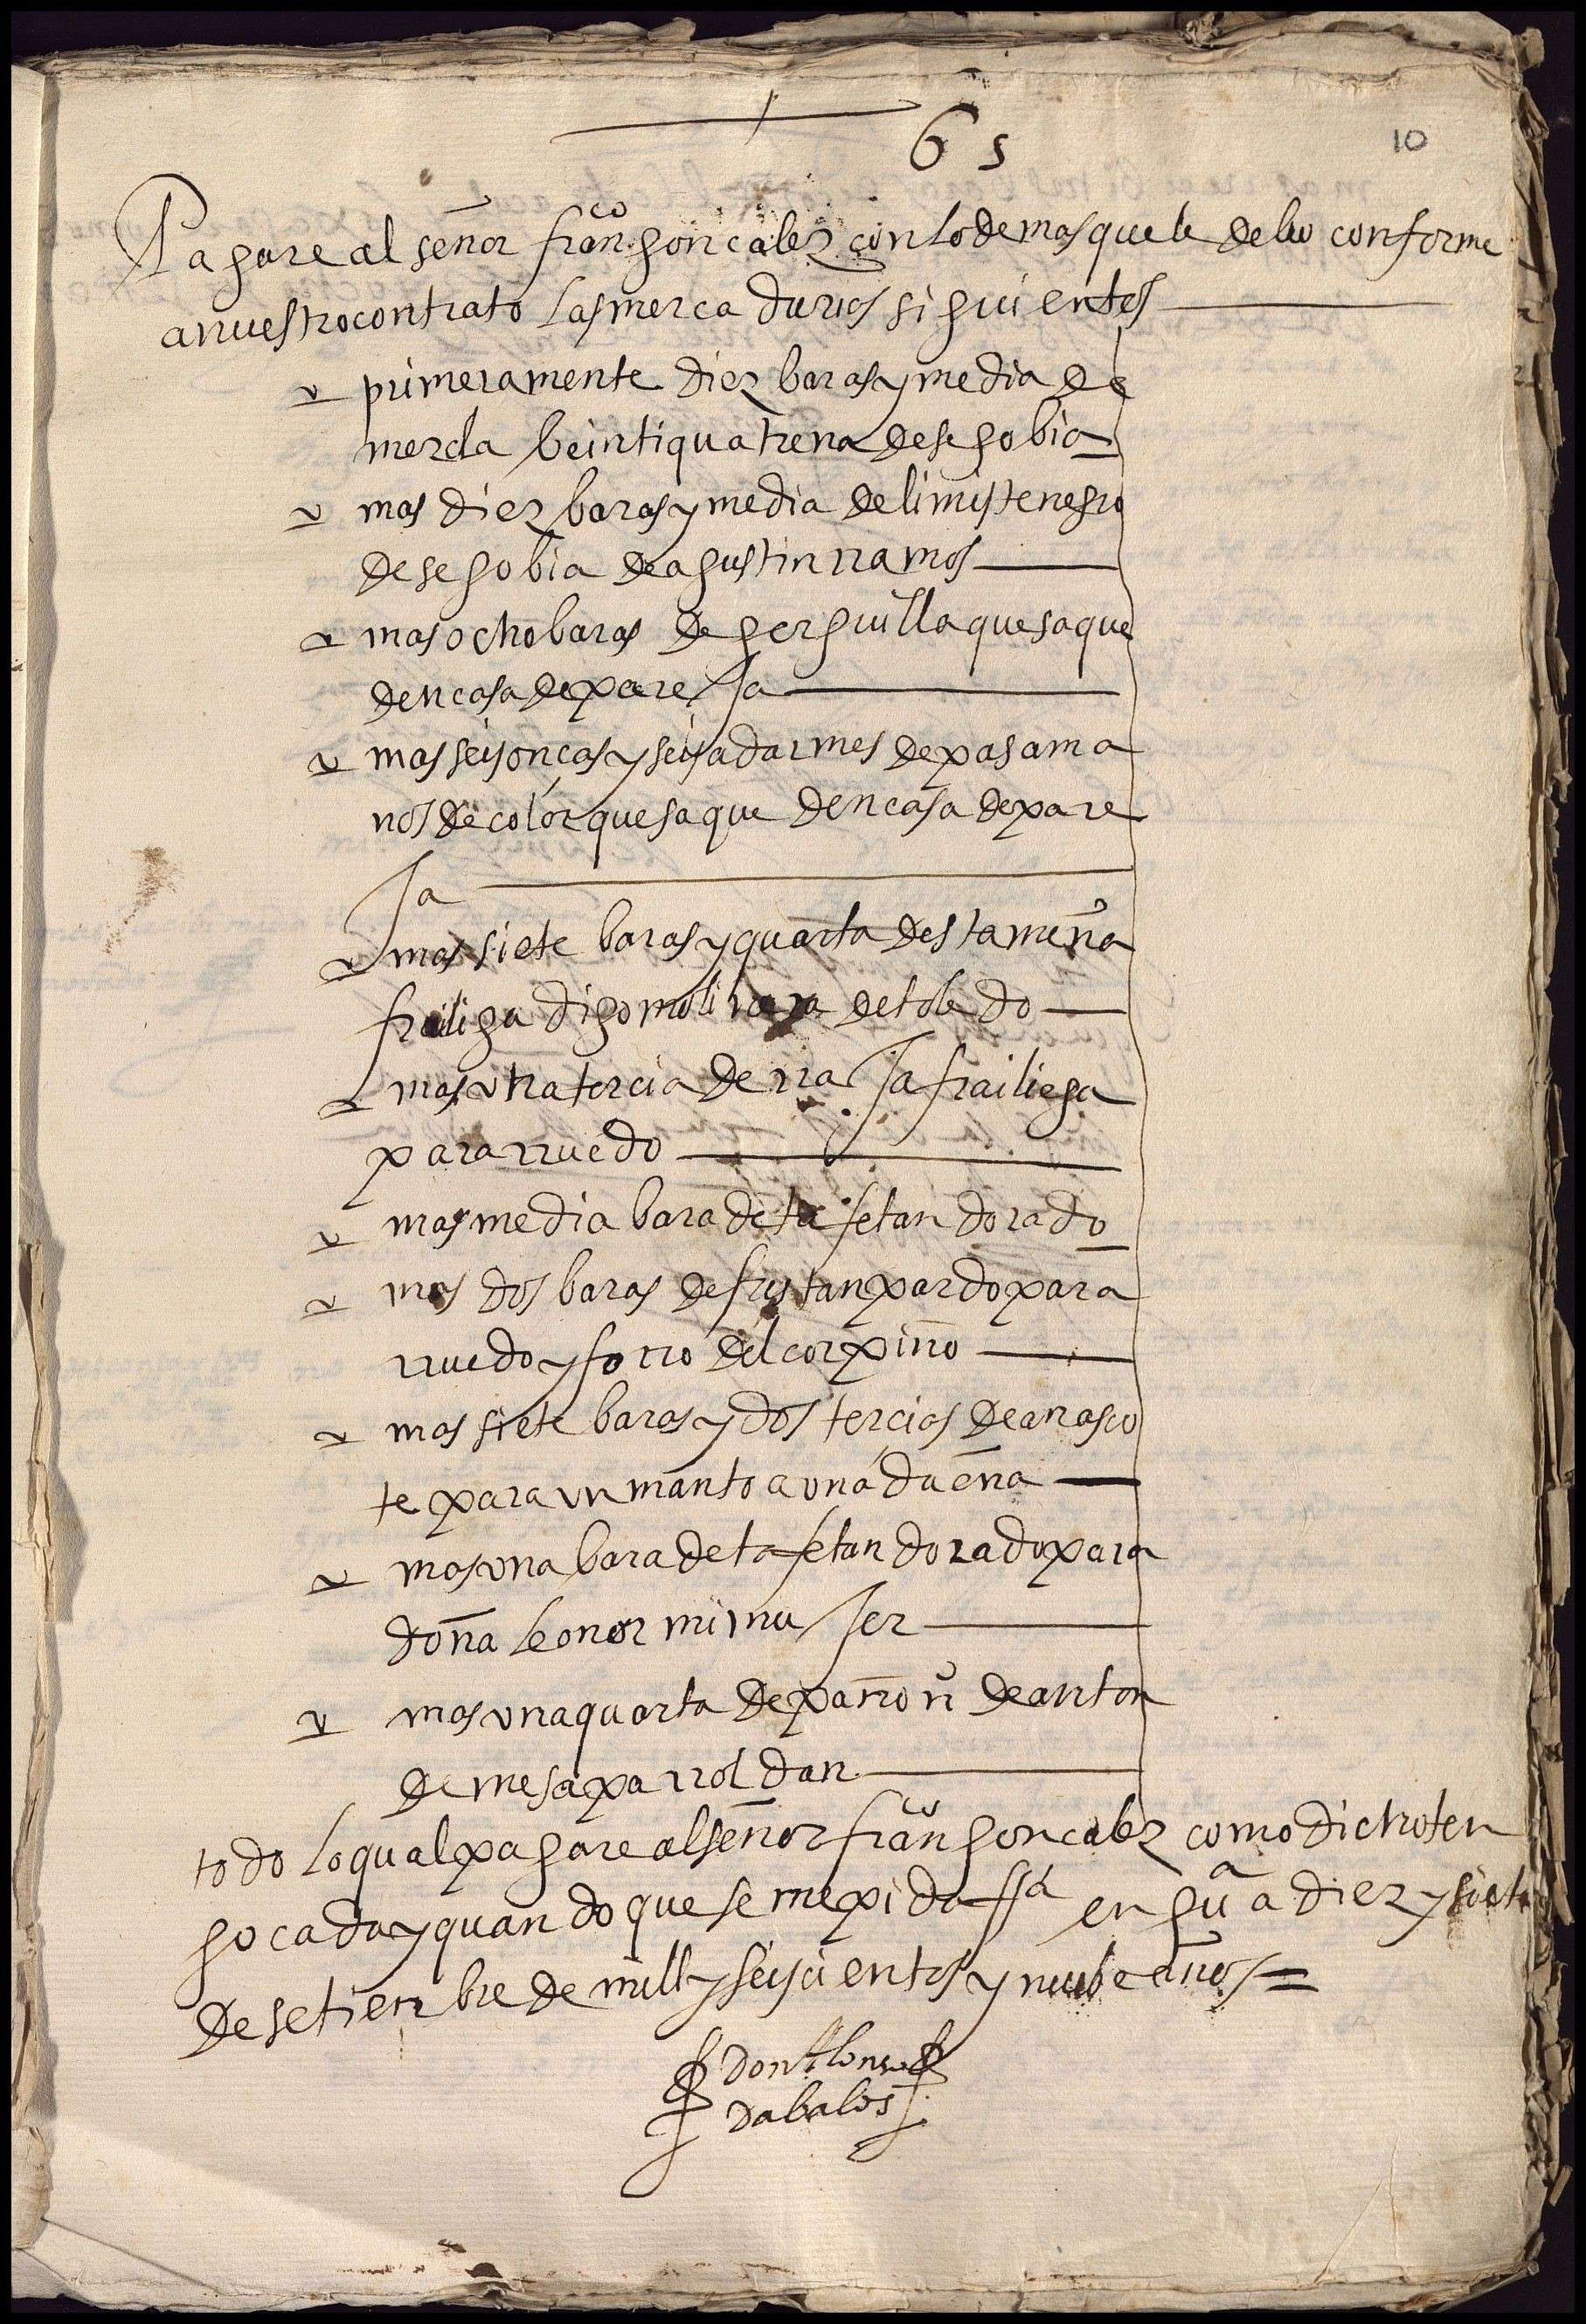 6 s
10
Pagare al señor franco. goncalez con lo demas que le debo conforme
a nuestro contrato las mercadurias siguientes
primeramente diez baras y media de
mezcla beintiquatrena de segobia
mas diez baras y media de limiste negro
de segobia de agustin rramos
mas ocho baras de gerguilla que saque
den casa de pareja
mas seis onças y seis adarmes de pasama
nos de color que saque den casa de pare
ja
mas siete baras y quarta destameña
frailiga digo molinera de toledo
mas otra tercia de rraja frailiega
para rruedo
mas media bara de tafetan dorado
mas dos baras de fustan pardo para
rruedo y forro del corpiño
mas siete baras y dos tercias de anasco
te para un manto a una dueña
mas una bara de tafetan dorado para
doña leonor mi mujer
mas una quarta de paño nº de anton
de mesa pa rroldan
todo lo qual pagare al señor franco goncalez como dicho ten
go cada y quando que se me pida ffa en gua a diez y siete
de setienbre de mill y seiscientos y nuebe años =
don Alonso
dabalos